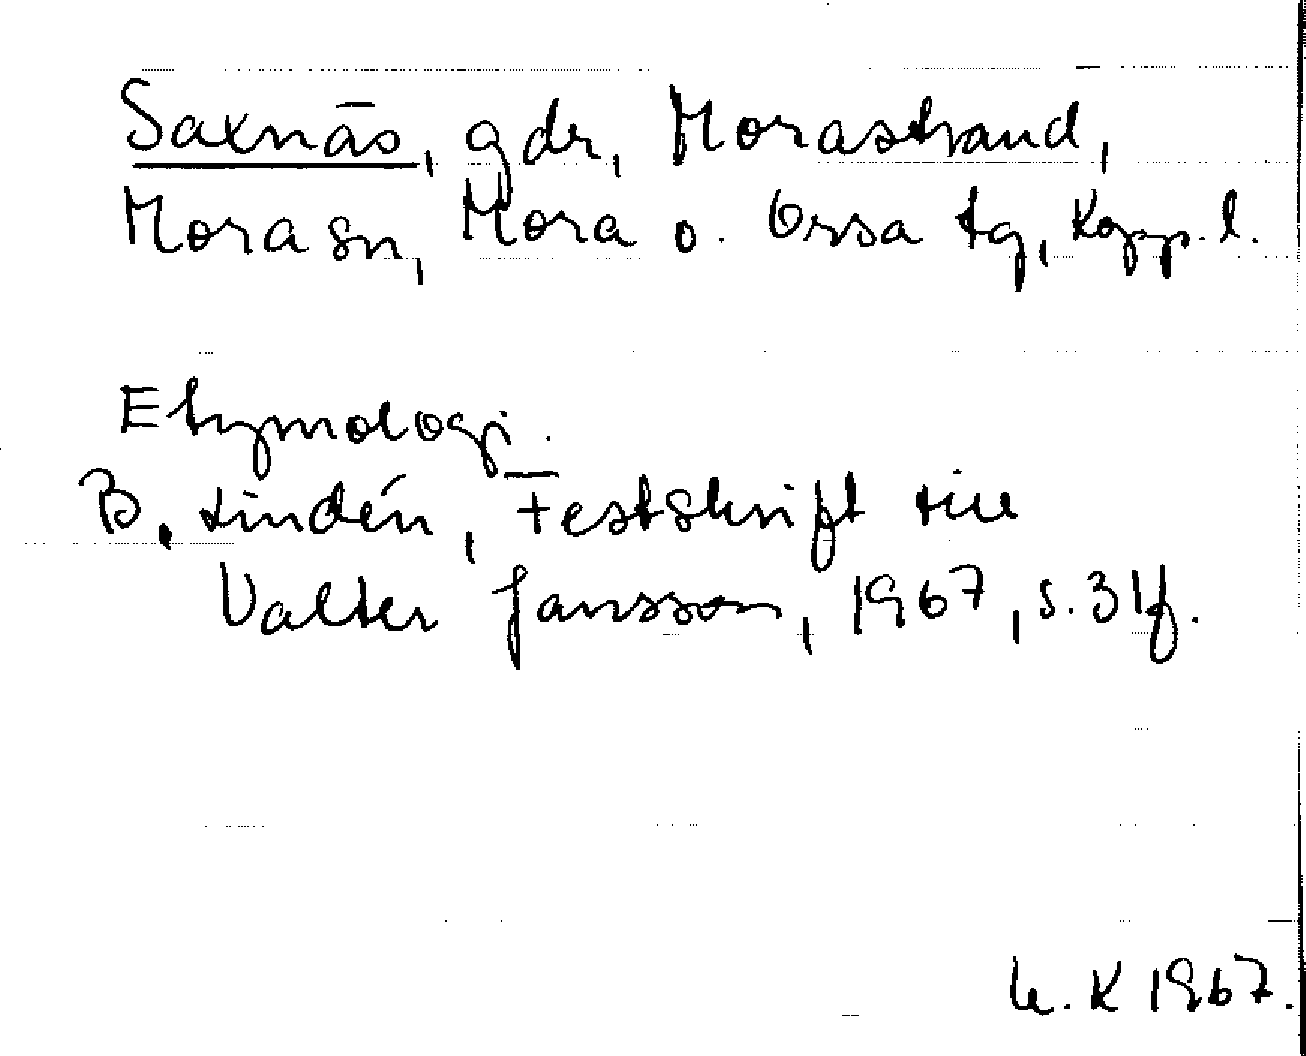 Saxnäs, gdr, Morastrand,
Mora sn, Mora o. Orsa tg, Kopp. l.
Etymologi.
B. Lindén, Festskrift till
Valter Jansson, 1967, s. 31f.
K 1967.